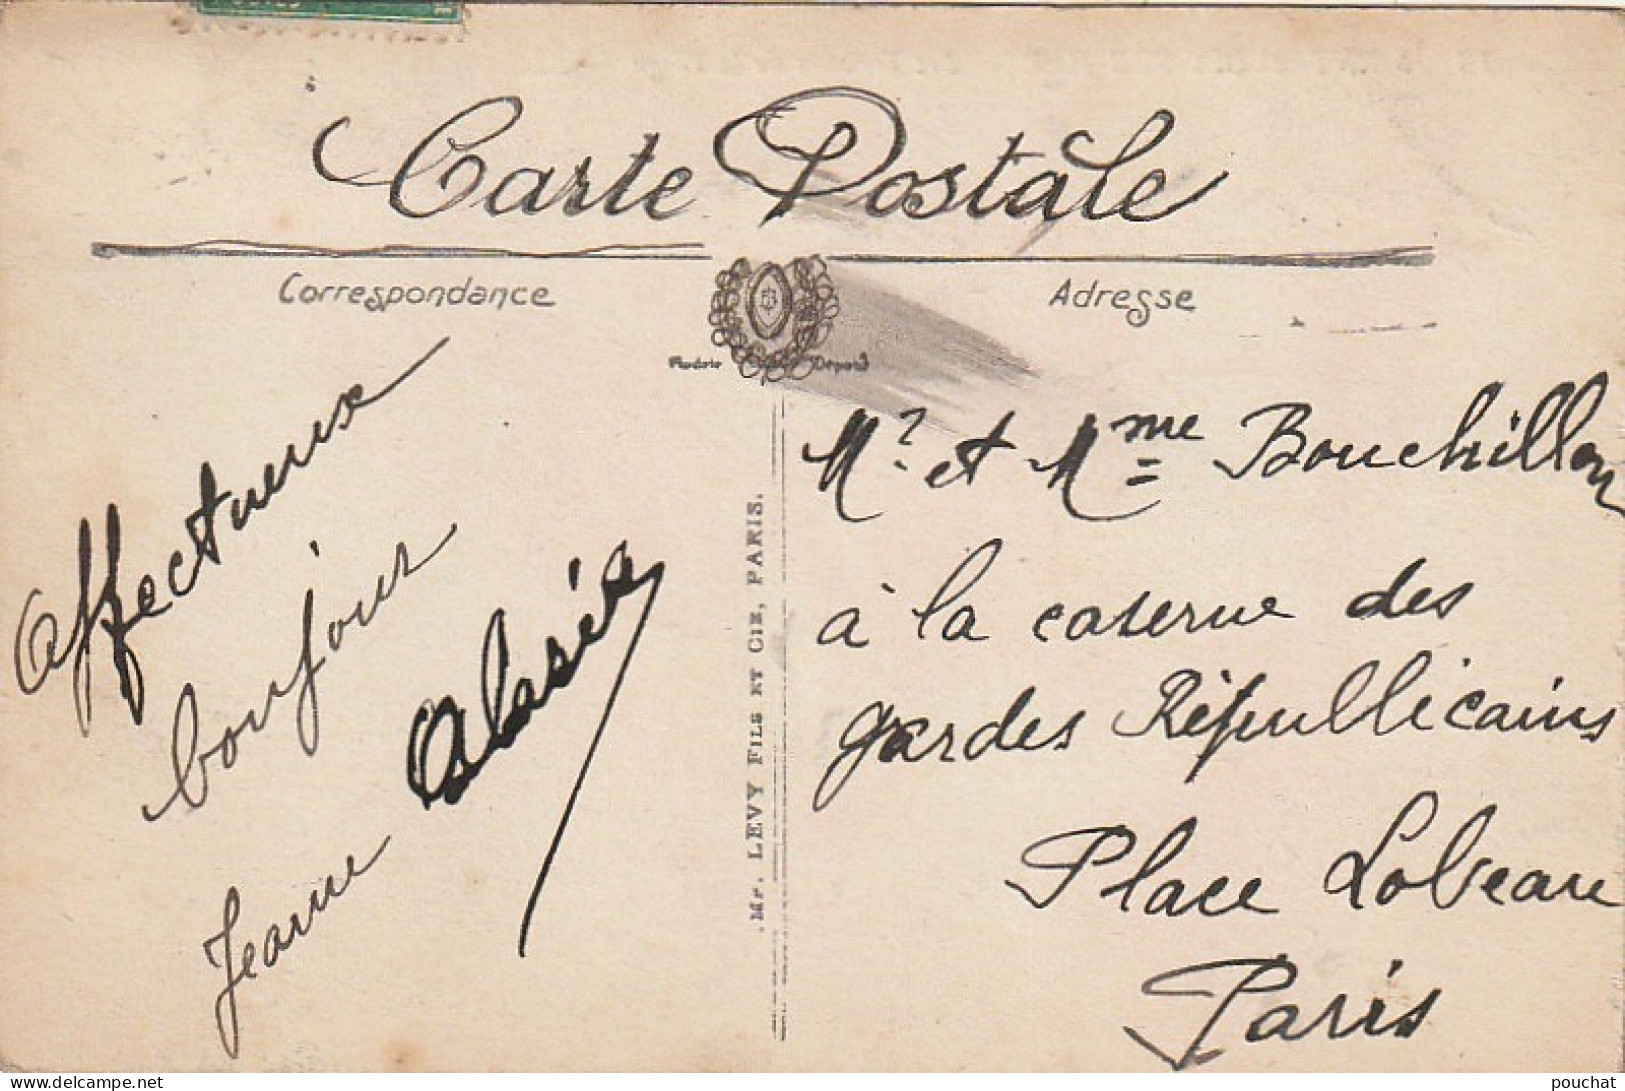 Carte Postale
Correspondance
Adresse
Affectueux
bonjour
Jeanne
Mr. LEVY FILS ET CIE, PARIS.
Mr. et Mme Bouchillon
à la caserne des
gardes Républicains
Place Lobeau
Paris
pouchat